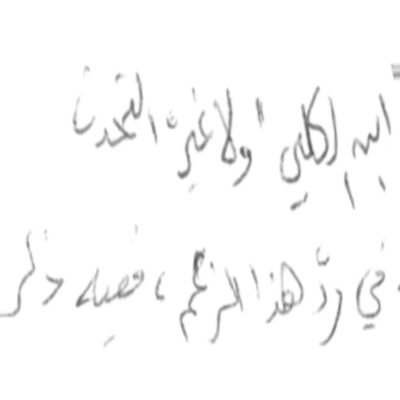 ابن الكلبي ولا غيره التحدث
في ردّ هذا الزعم، فصيه ذكر